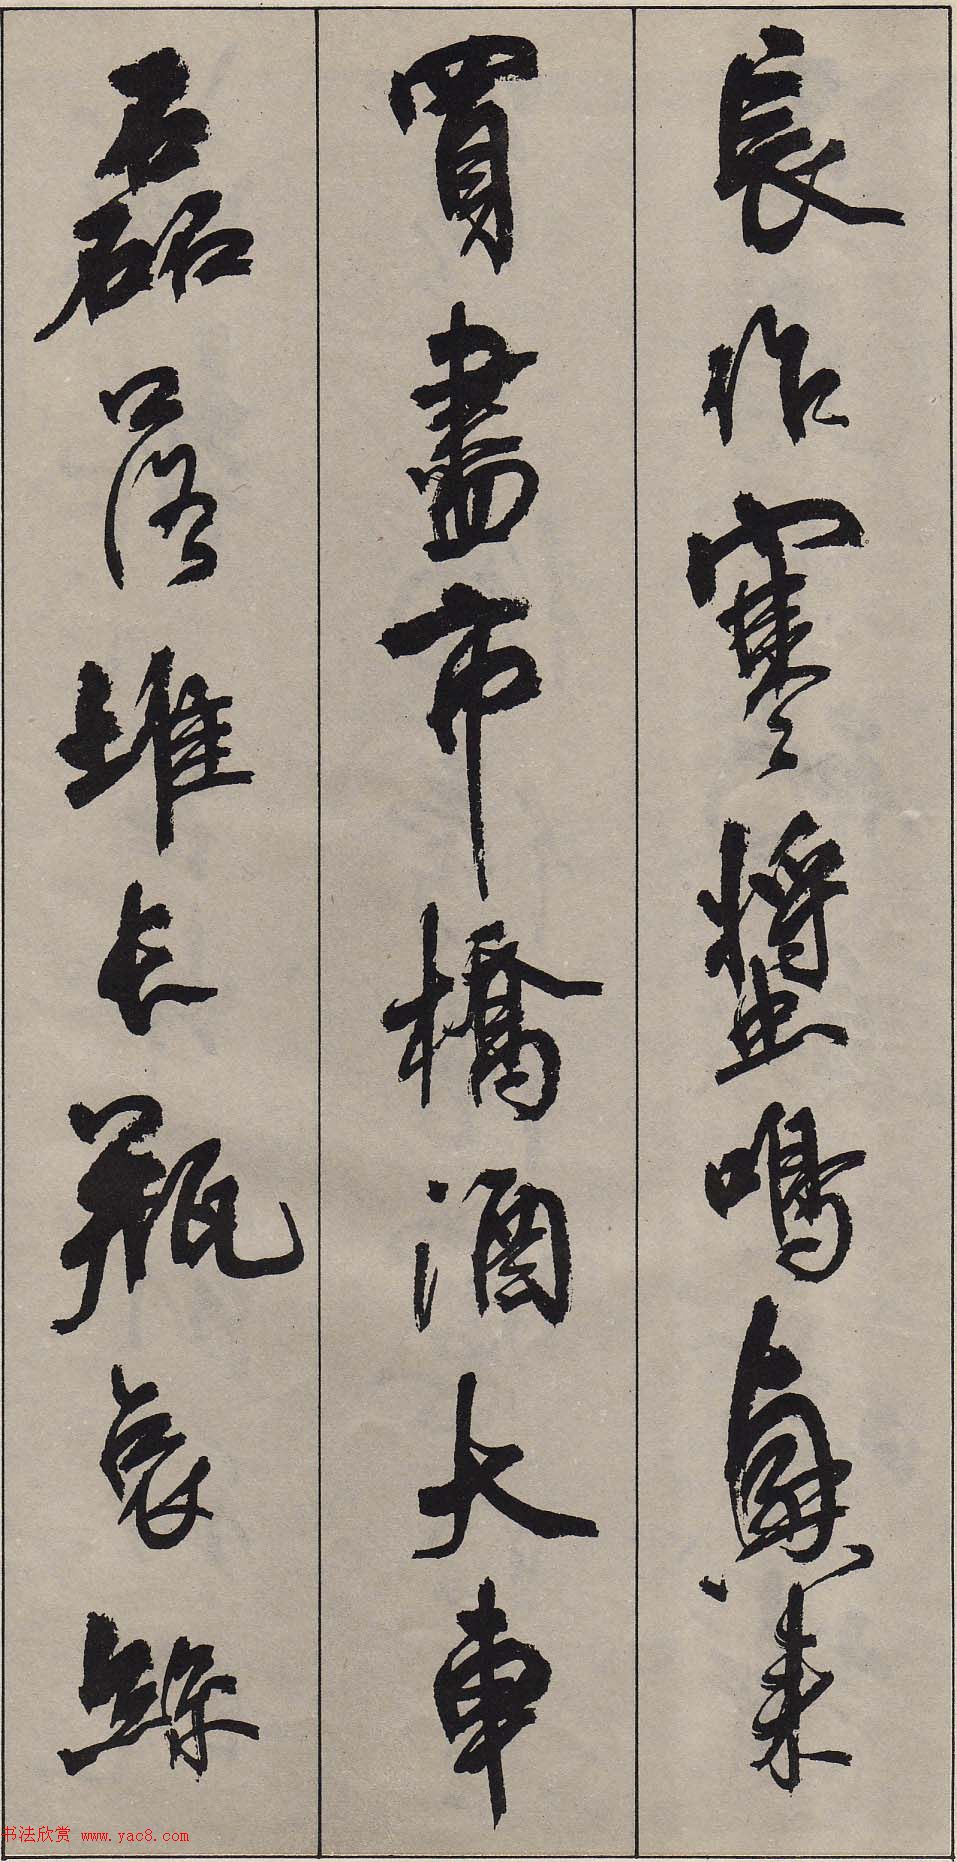 長作寒螿鳴負來
買盡市橋酒大車
磊落堆長瓶哀絲
书法欣赏 www.yac8.com